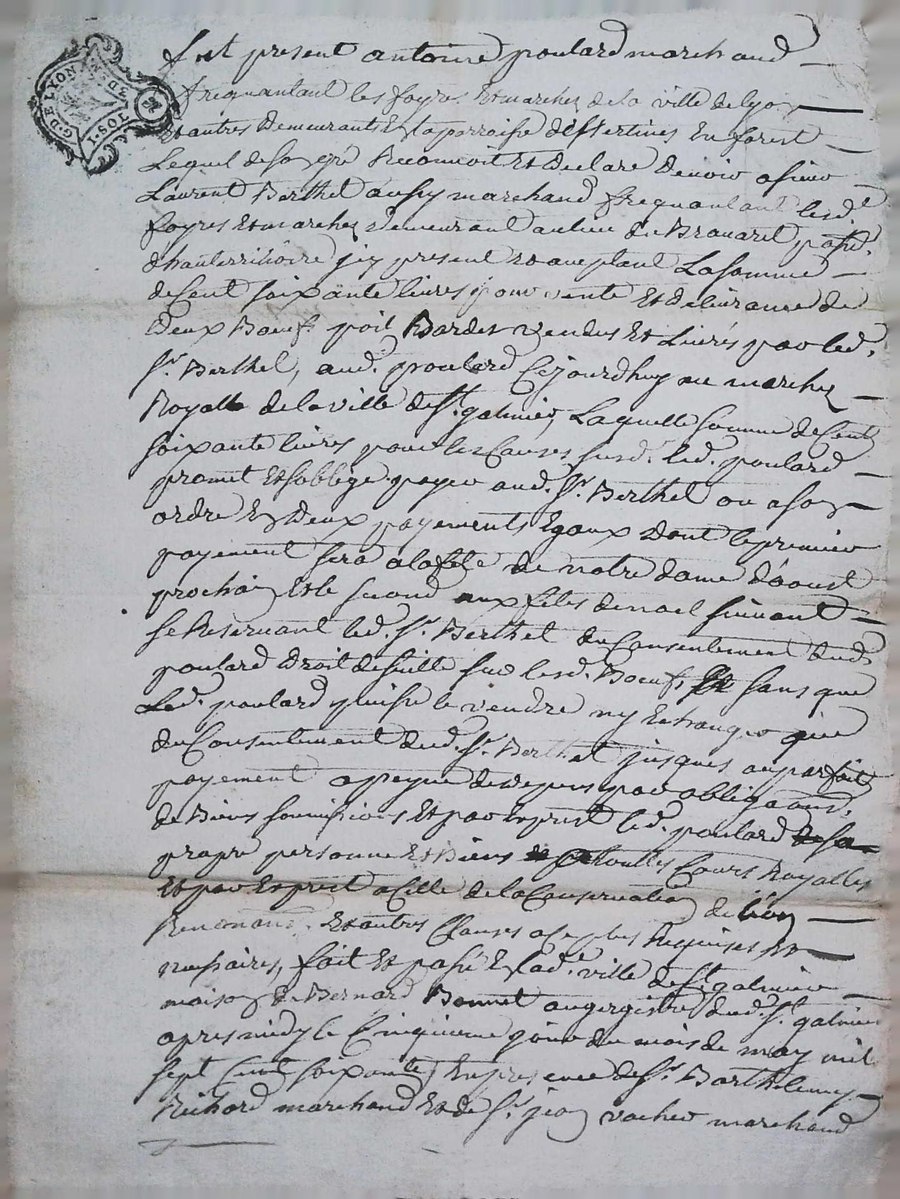 G. DE LYON
DEN
1 SOL 3D
fut present antoine poulard marchand
frequantant les foyres Et marchez de la ville de lyon
Et autres demeurants En la parroisse dessertines En forest
Lequel de son gré Reconnoit Et declare devoir a sieur
Laurent Berthet aussy marchand frequantant lesd.
foyres Et marchez demeurant au lieu du Brouaret passe
d'hauterrihoire jcy present Et aceptant La somme
de Cent soixante livres pour vente Et delivrance de
deux Boeufs poil Bardes vendus Et Livrés par led.
Sr. Berthet, aud. poulard Cejourdhuy au marchez
Royalle de la ville de St. galmier, Laquelle somme de Cent
soixante livres pour les Causes susd. led. poulard
promet Et soblige payer aud. Sr. Berthet ou a son
ordre En deux payements Egaux dont le premier
payement sera a la fete de notre dame d'aoust
prochain Et le second aux fetes de noel suivant
se Reservant led. Sr. Berthet du Consentement dud.
poulard droit de suitte sur lesd. Boeufs sans que
Led. poulard puisse le vendre ny Echanger que
du Consentement dud. Sr. Berthet jusques au parfait
payement a peyne de depens par obligaons
de Biens soumissions Et par Exprest led. poulard sa
propre personne Et Biens a toutes Cours Royalles
Et par Exprest a Celle de la Conservation de lion
Renonciand. Et autres Clauses a ce plus Requises Et
nessaires, fait Et passé En lad. ville de St galmier
maison de Bernard Bonnet aubergiste dud. St. galmier
apres midy le Cinquieme jour du mois de may mil
sept Cent soixante, En presence de Sr. Barthelemy
Richard marchand Et de Sr. jean vacher marchand